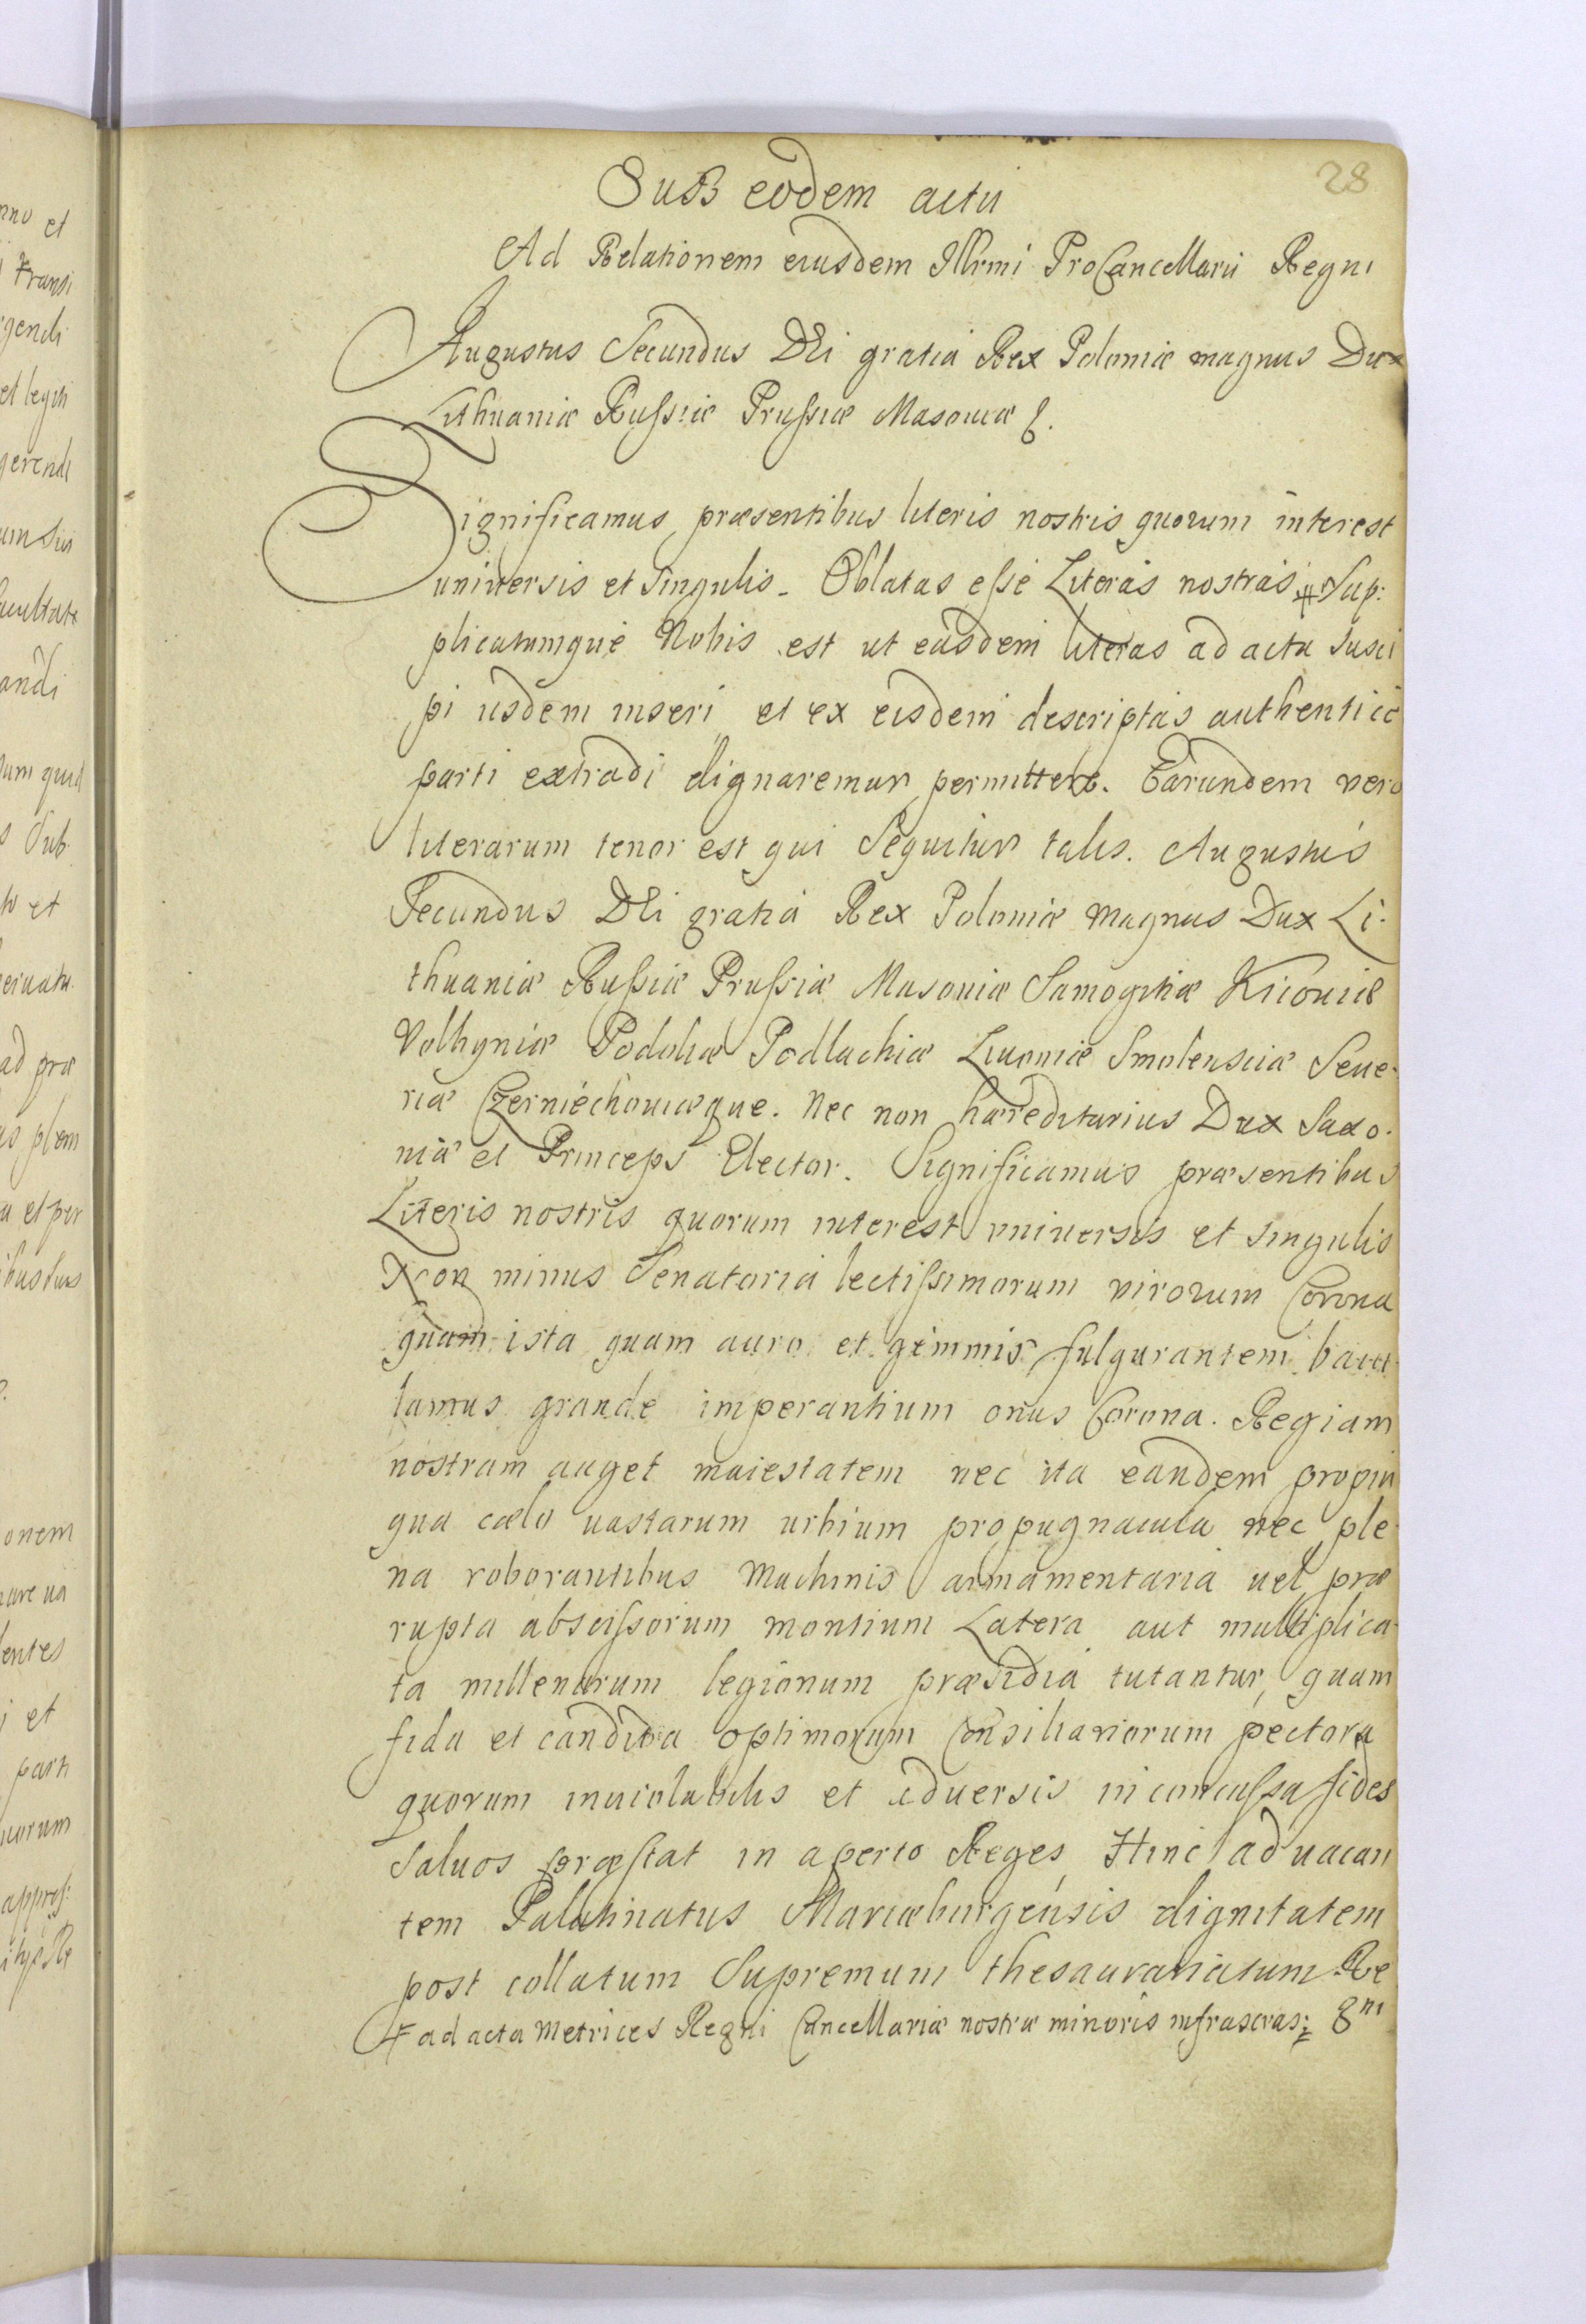 28
Sub eodem actu
Ad Relationem eiusdem Illrmi ProCancellarii Regni
Augustus Secundus DEi gratia Rex Poloniæ magnus Dux
Lithuaniæ Russiæ Prussiæ Masouiæ &.
Significamus præsentibus literis nostris quorum interest
universis et singulis. Oblatas esse Literas nostras # Sup:
plicatumque Nobis est ut easdem literas ad acta susci
pi iisdem inseri et ex eisdem descriptas authentice
parti extradi dignaremur permittere. Earundem vero
literarum tenor est qui sequitur talis. Augustus
Secundus DEi gratia Rex Poloniæ Magnus Dux Li-
thuaniæ Russiæ Prussiæ Masouiæ Samogitiæ Kiiouiæ
Volhyniæ Podoliæ Podlachiæ Liuoniæ Smolensciæ Seue-
riæ Czerniechouiæque. Nec non hæreditarius Dux Saxo-
niæ et Princeps Elector. Significamus præsentibus
Literis nostris quorum interest vniuersis et singulis
Non minus Senatoria lectissimorum virorum Corona
quam ista quam auro et gemmis fulgurantem baiu-
lamus grande imperantium onus Corona. Regiam
nostram auget maiestatem nec ita eandem propin
qua cælo uastarum urbium propugnacula nec ple-
na roborantibus Machinis armamentaria uel præ
rupta abscissorum montium Latera aut multiplica-
ta millenarum legionum præsidia tutantur, quam
fida et candida optimorum Consiliariorum pectora
quorum inuiolabilis et aduersis inconcussa fides
saluos præstat in aperto Reges, Hinc ad uacan
tem Palatinatus Mariæburgensis dignitatem
post collatum Supremum thesaurariatum Re
# ad acta Metrices Regni Cancellariæ nostræ minoris infrascras: gni